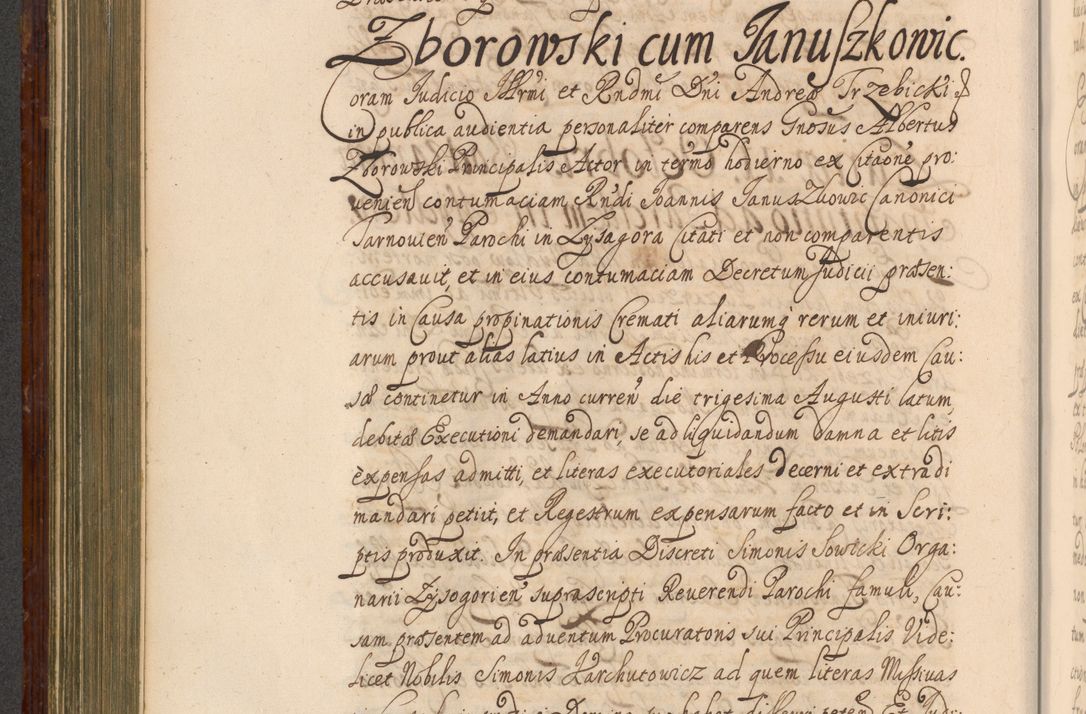 Zborowski cum Januszkowic.
Coram Judicio Illrmi et Rndmi Dni Andreæ Trzebicki &
in publica audientia personaliter comparens Gnosus Albertus
Zborowski Principalis Actor in termo hodierno ex Citaone pro:
venien contumaciam Rndi Joannis Januszkovic Canonici
Tarnovien Parochi in Lysagora Citati et non comparentis
accusavit, et in eius contumaciam Decretum Judicii præsen:
tis in Causa propinationis Cremati aliarumq rerum et iniuri:
arum prout alias latius in Actis his et Processu eiusdem Cau:
sæ continetur in Anno curren die trigesima Augusti latum,
debitæ Executioni demandari, se ad liquidandum damna et litis
expensas admitti, et literas executoriales decerni et extradi
mandari petiit, et Regestrum expensarum facto et in Scri:
ptis produxit. In præsentia Discreti Simonis Sowicki Orga:
narii Lysogorien suprascripti Reverendi Parochi famuli, Cau:
sam præsentem ad adventum Procuratoris sui Principalis Vide:
licet Nobilis Simonis Karchutowicz ad quem literas Missivas